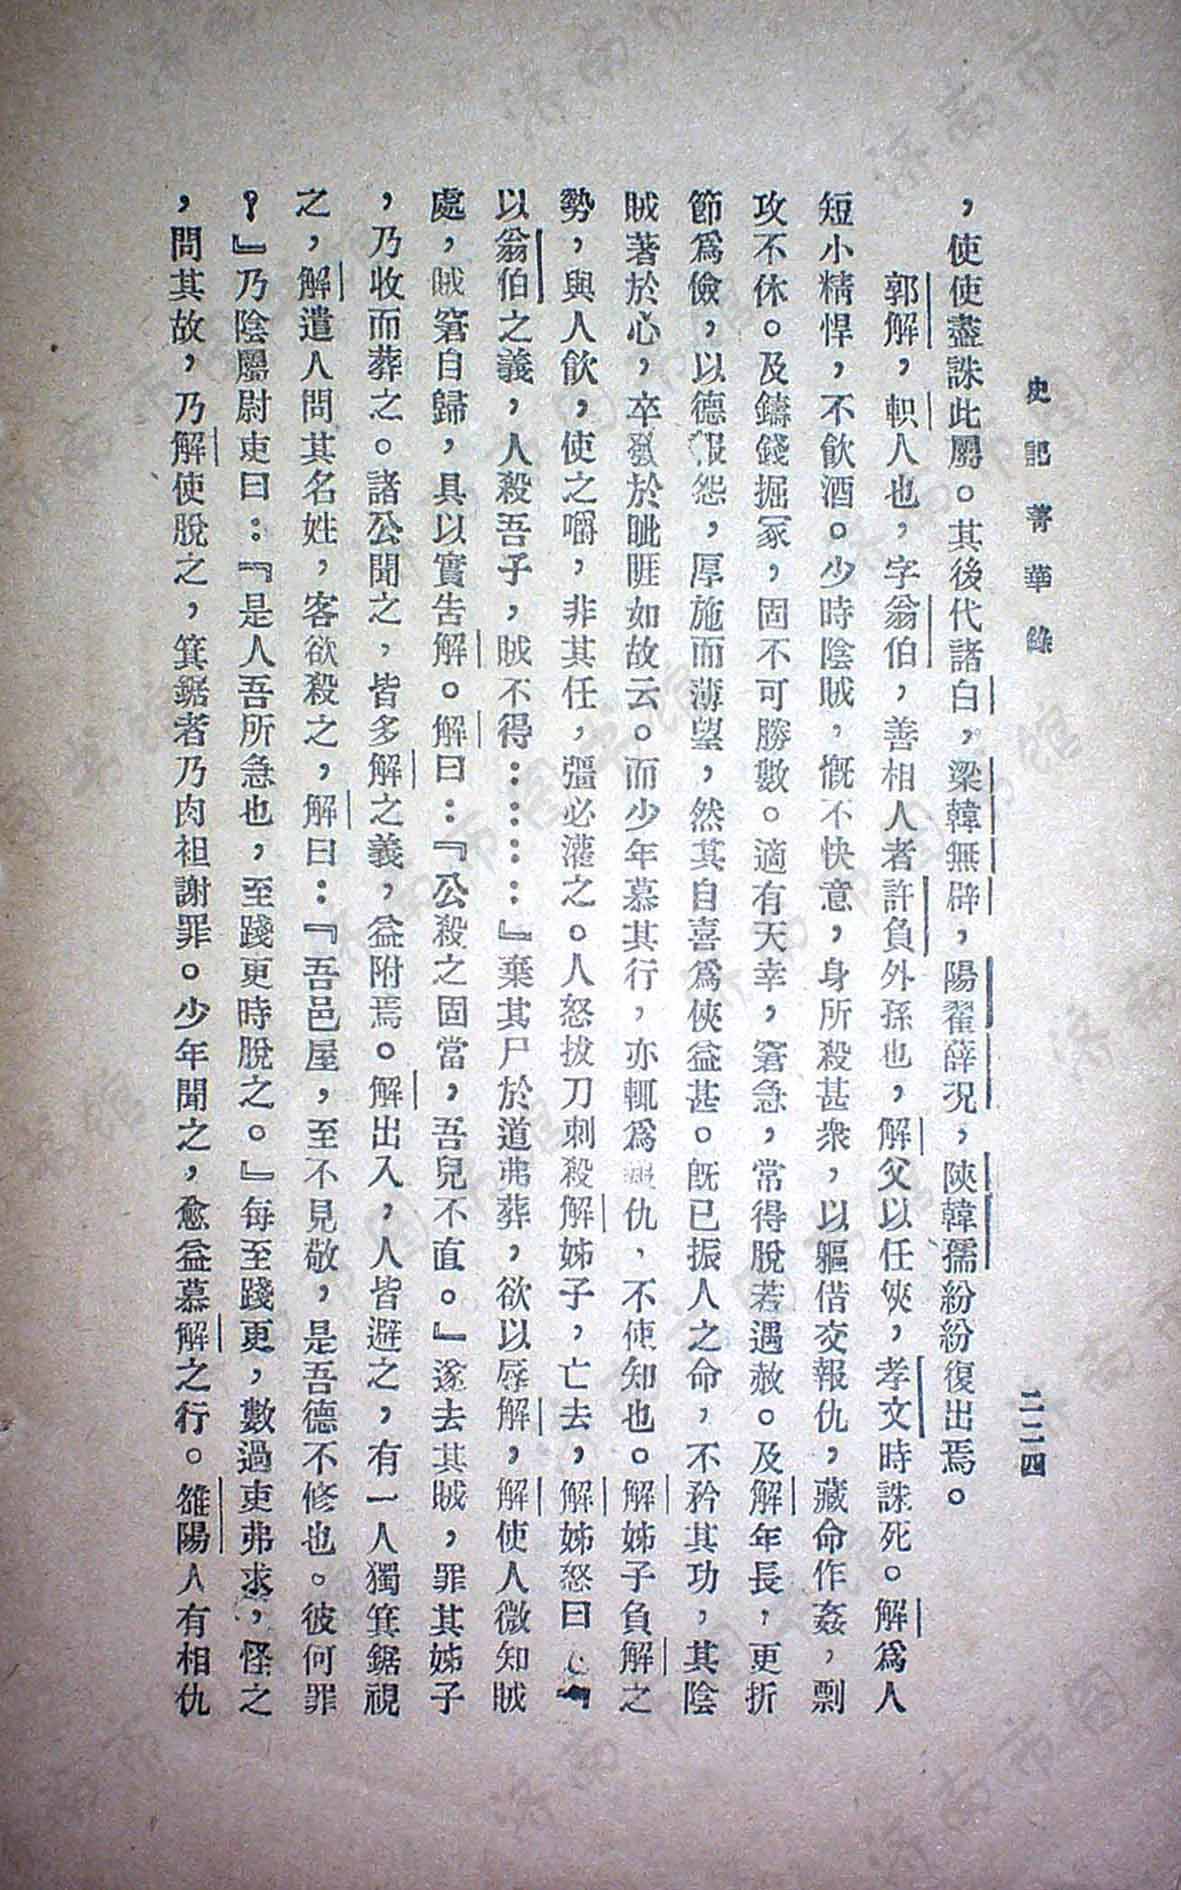 史記菁華錄
二二四
，使使盡誅此屬。其後代諸白，梁韓無辟，陽翟薛況，陝韓孺紛紛復出焉。
郭解，軹人也，字翁伯，善相人者許負外孫也，解父以任俠，孝文時誅死。解爲人
短小精悍，不飲酒。少時陰賊，慨不快意，身所殺甚衆，以軀借交報仇，藏命作姦，剽
攻不休。及鑄錢掘冢，固不可勝數。適有天幸，窘急，常得脫若遇赦。及解年長，更折
節爲儉，以德報怨，厚施而薄望，然其自喜爲俠益甚。旣已振人之命，不矜其功，其陰
賊著於心，卒發於睚眦如故云。而少年慕其行，亦輒爲報仇，不使知也。解姊子負解之
勢，與人飲，使之嚼，非其任，彊必灌之。人怒拔刀刺殺解姊子，亡去，解姊怒曰：『
以翁伯之義，人殺吾子，賊不得：：：：：』棄其尸於道弗葬，欲以辱解，解使人微知賊
處，賊窘自歸，具以實吿解。解曰：『公殺之固當，吾兒不直。』遂去其賊，罪其姊子
，乃收而葬之。諸公聞之，皆多解之義，益附焉。解出入，人皆避之，有一人獨箕鋸視
之，解遣人問其名姓，客欲殺之，解曰：『吾邑屋，至不見敬，是吾德不修也。彼何罪
？』乃陰屬尉吏曰：『是人吾所急也，至踐更時脫之。』每至踐更，數過吏弗求，怪之
，問其故，乃解使脫之，箕鋸者乃肉袒謝罪。少年聞之，愈益慕解之行。雒陽人有相仇
济南市图书馆